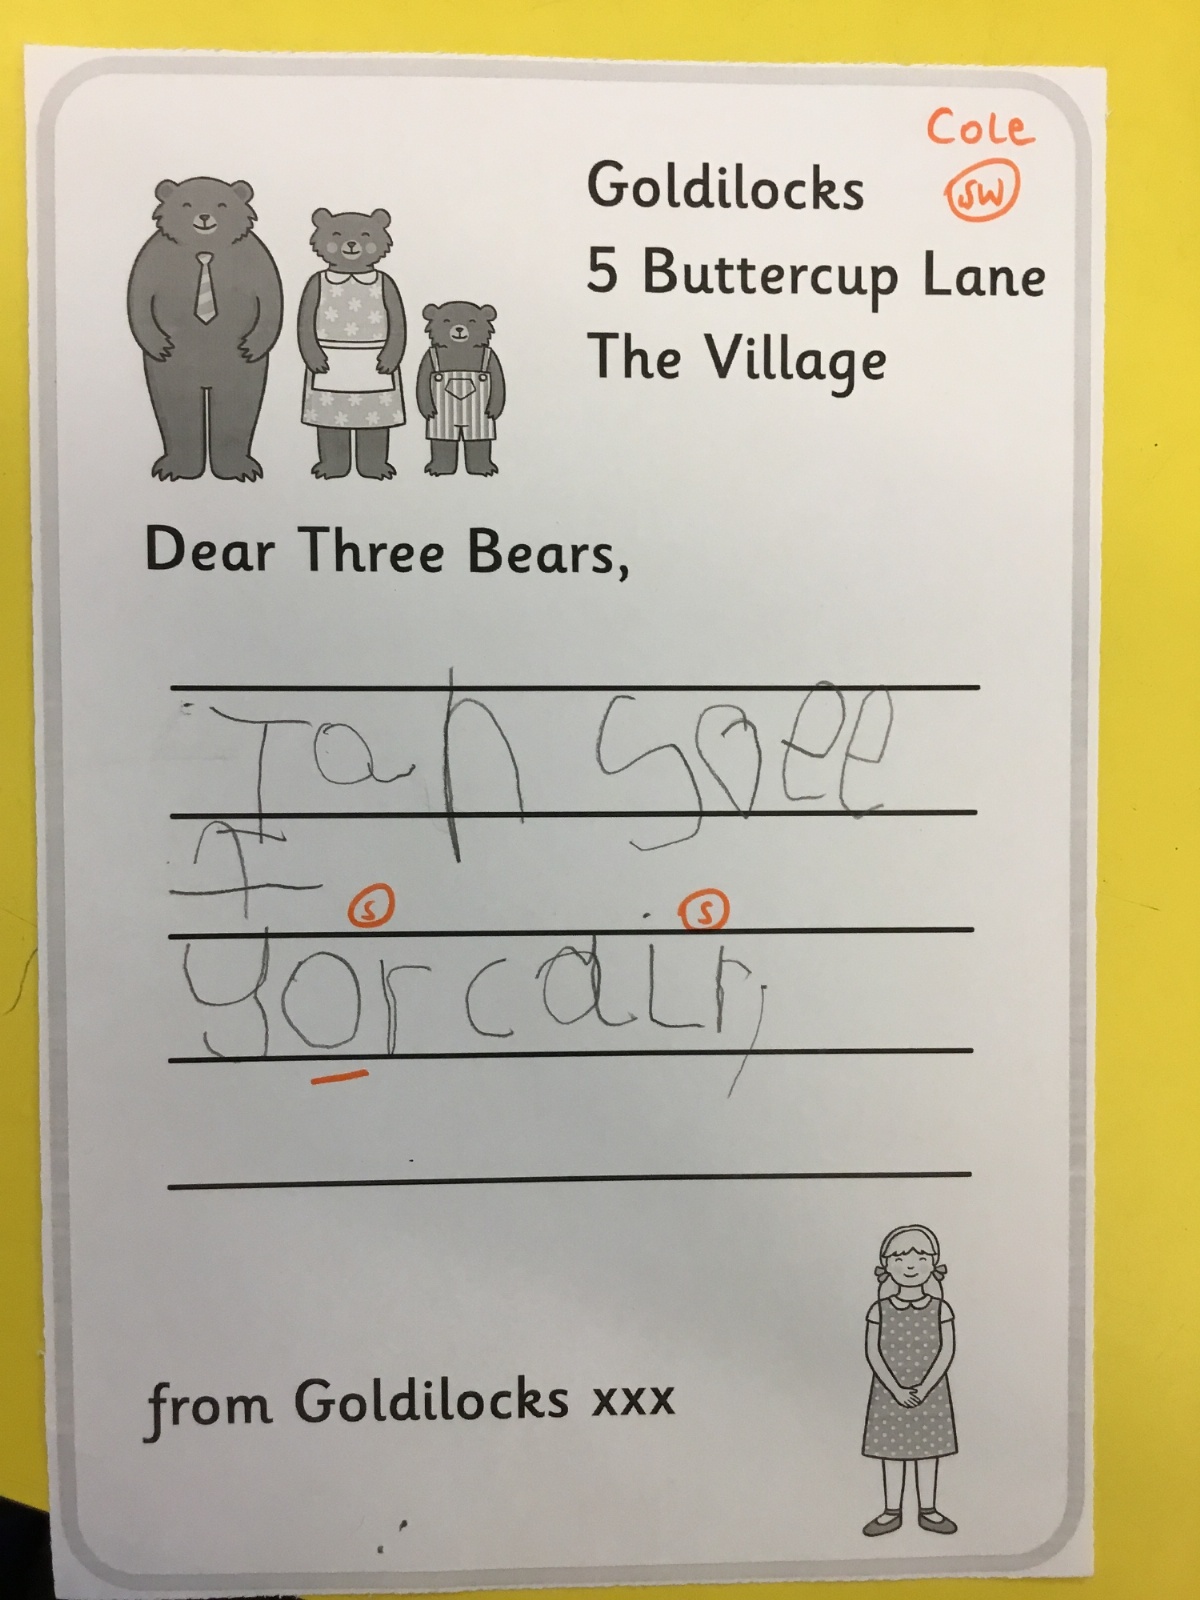 Cole
Goldilocks SW
5 Buttercup Lane
The Village
Dear Three Bears,
I a h soee
f
S S
yor cair,
from Goldilocks xxx